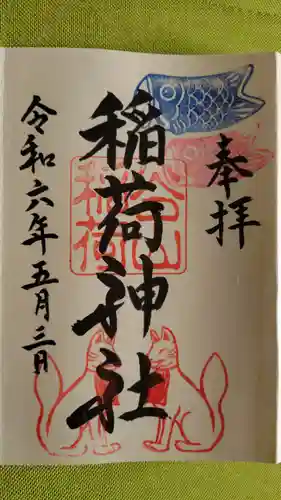 奉拝
稲荷神社
令和六年五月三日